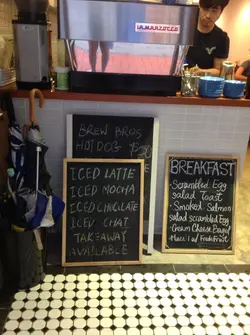 LA MARZOCCO
BREW BROS
HOT DOG
ICED LATTE
ICED MOCHA
ICED CHOCOLATE
ICED CHAI
TAKEAWAY
AVAILABLE
BREAKFAST
Scrambled Egg
salad Toast
Smoked Salmon
salad scrambled Egg
Cream Cheese Bagel
Muesli w/ Fresh Fruit